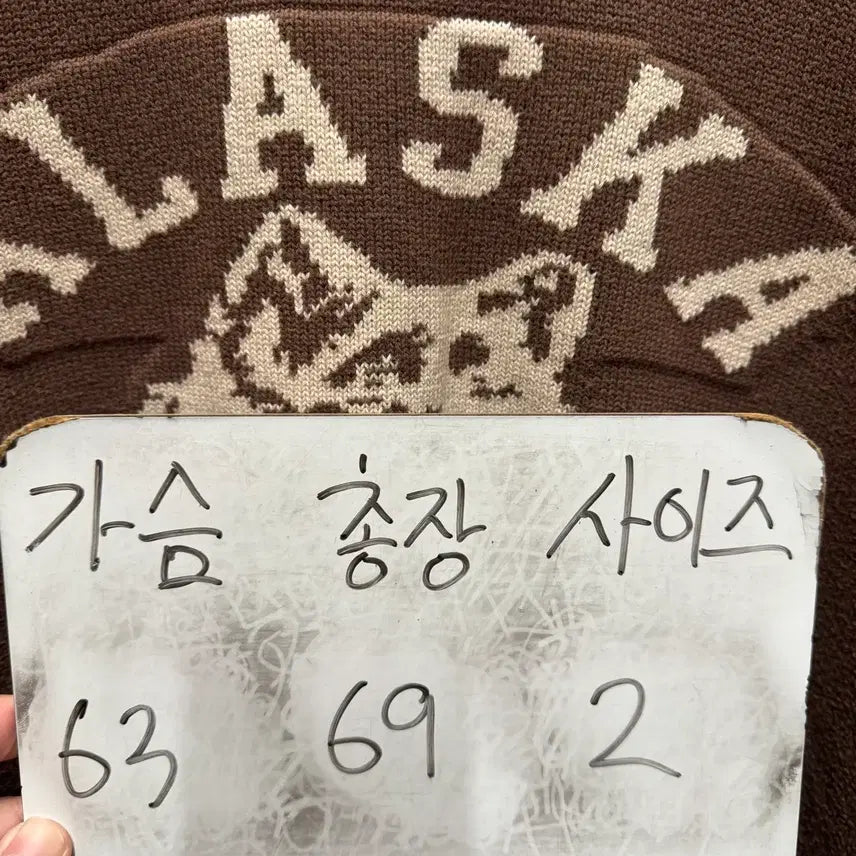 ALASKA
가슴 총장 사이즈
63 69 2